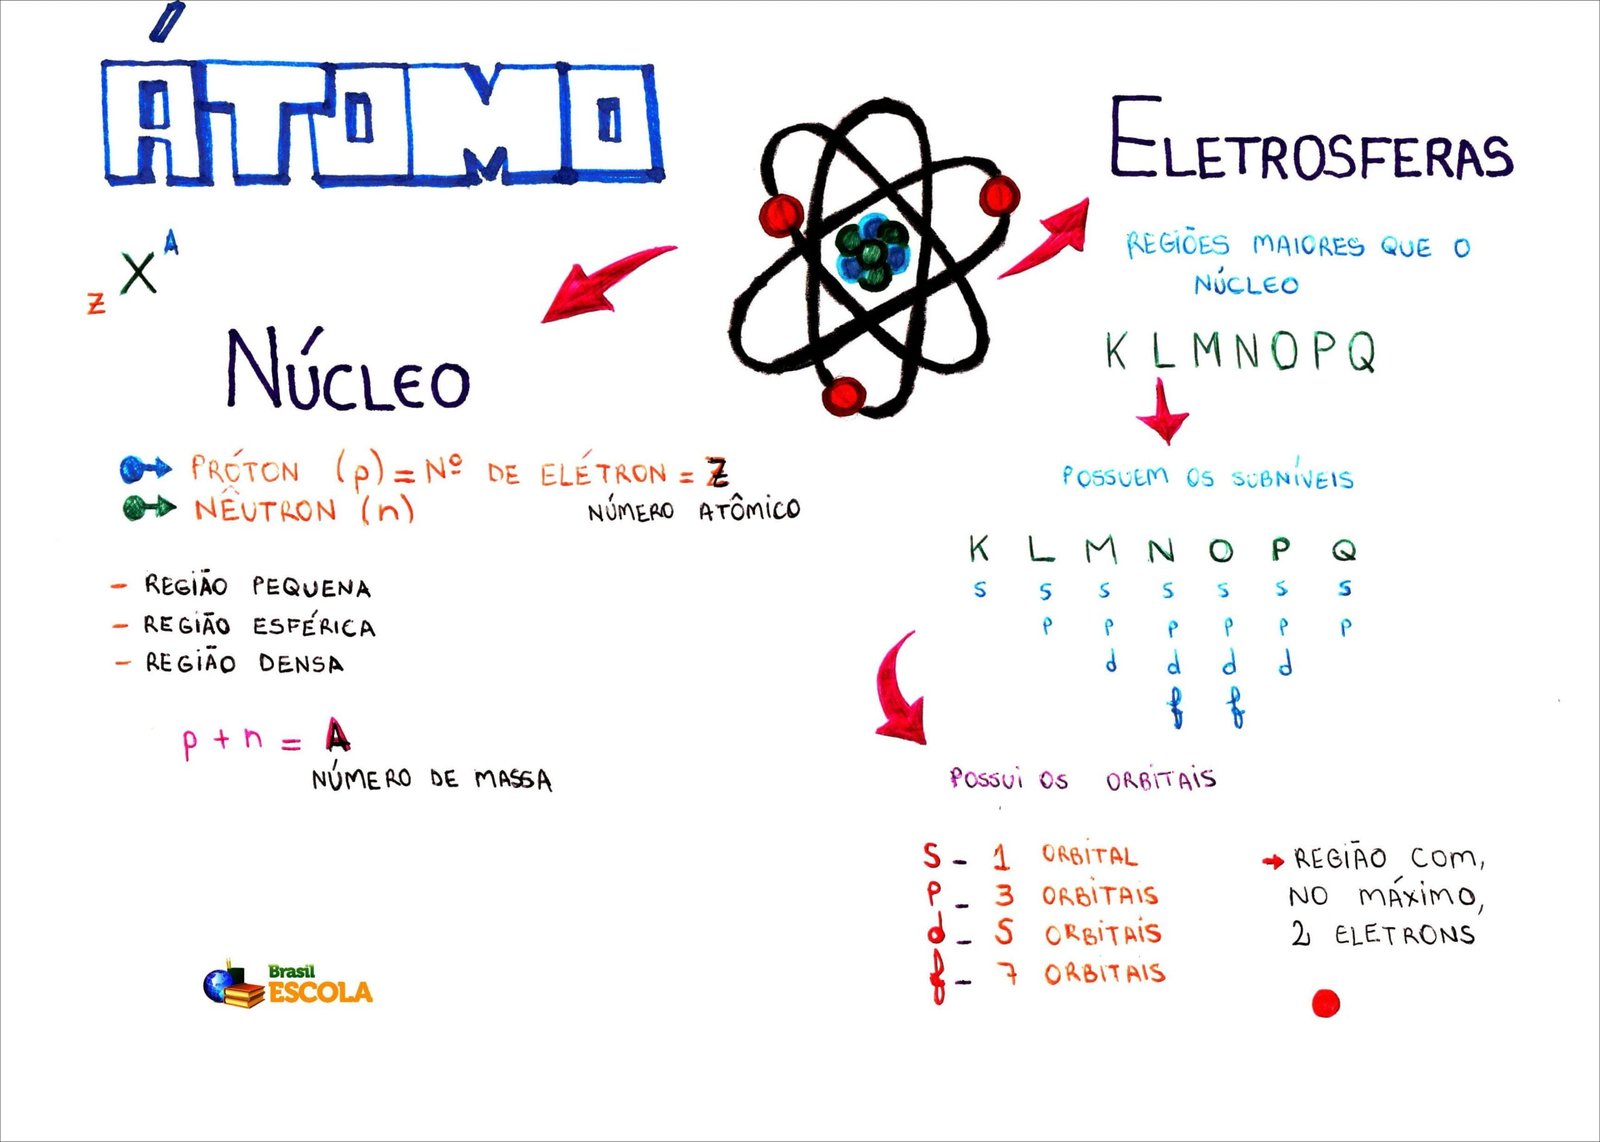 ÁTOMO
X A
Z
NÚCLEO
PRÓTON (p) = Nº DE ELÉTRON = Z
NÊUTRON (n)
NÚMERO ATÔMICO
- REGIÃO PEQUENA
- REGIÃO ESFÉRICA
- REGIÃO DENSA
p + n = A
NÚMERO DE MASSA
Brasil
ESCOLA
ELETROSFERAS
REGIÕES MAIORES QUE O
NÚCLEO
K L M N O P Q
POSSUEM OS SUBNÍVEIS
K L M N O P Q
s s s s s s s
p p p p p p
d d d d
f f
POSSUI OS ORBITAIS
S - 1 ORBITAL
P - 3 ORBITAIS
d - 5 ORBITAIS
f - 7 ORBITAIS
REGIÃO COM,
NO MÁXIMO,
2 ELETRONS